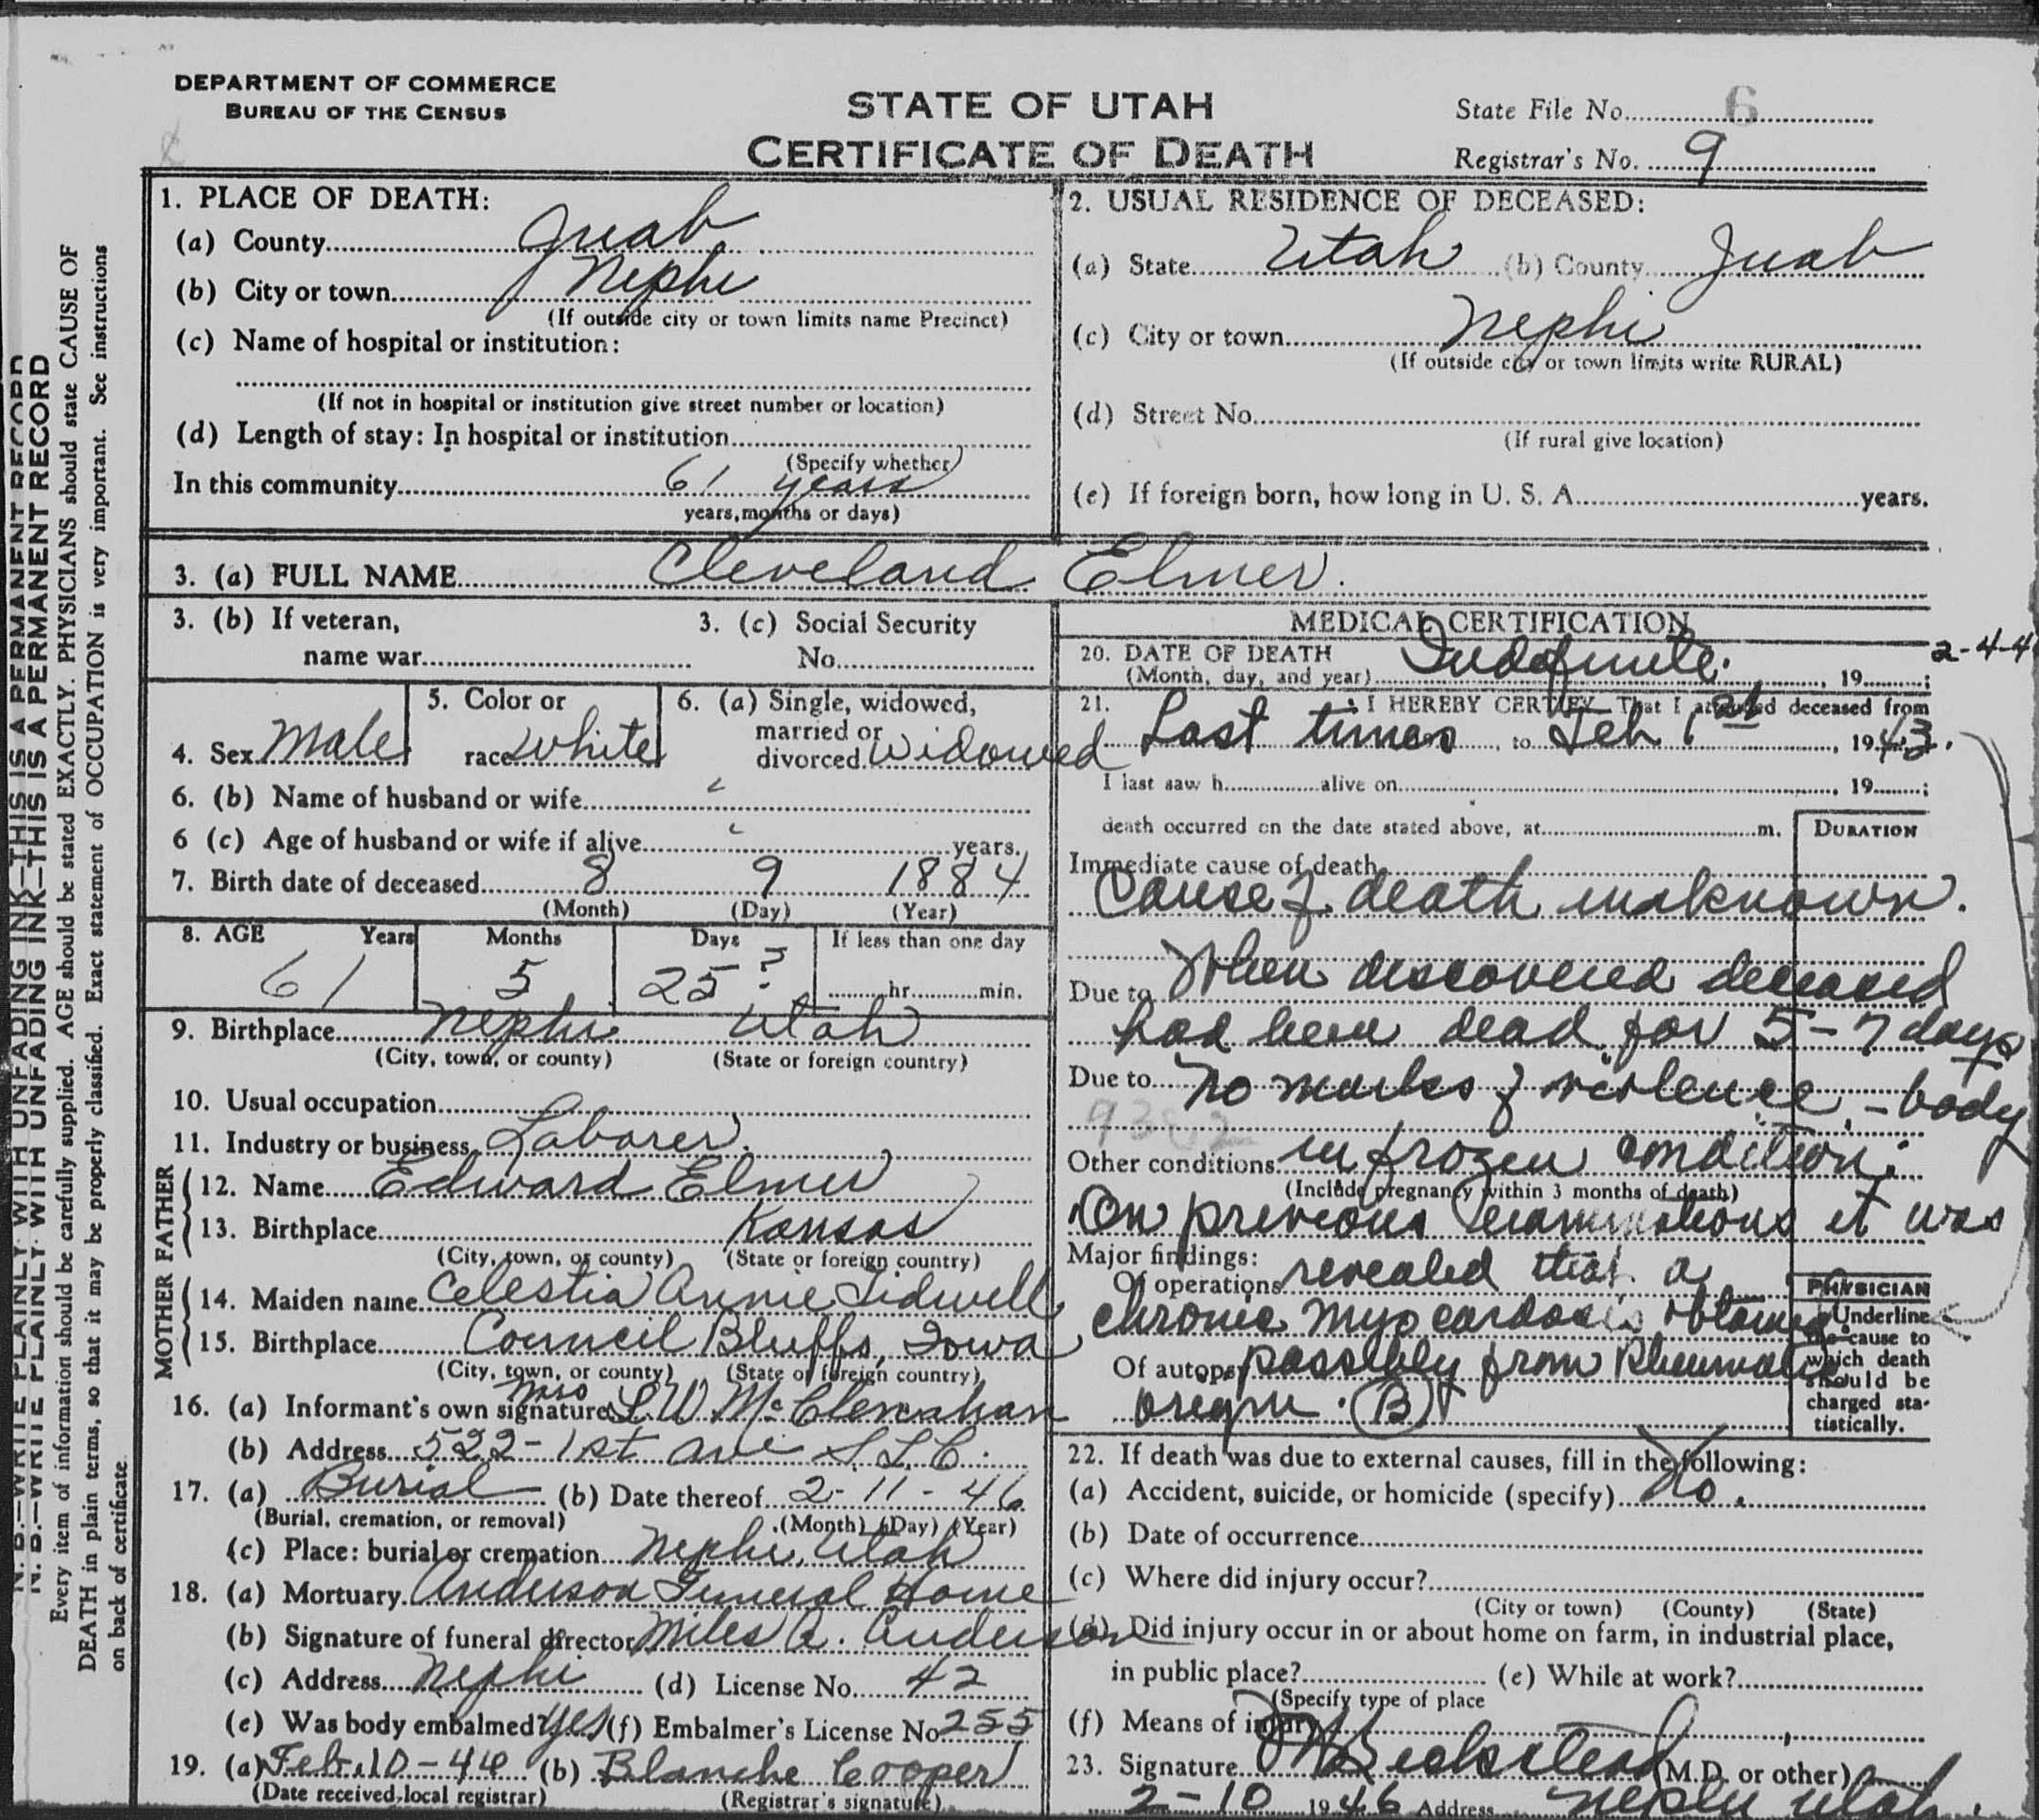 DEPARTMENT OF COMMERCE
BUREAU OF THE CENSUS
STATE OF UTAH
CERTIFICATE OF DEATH
State File No. 6
Registrar's No. 9
N. B.—WRITE PLAINLY WITH UNFADING INK—THIS IS A PERMANENT RECORD
N. B.—WRITE PLAINLY WITH UNFADING INK—THIS IS A PERMANENT RECORD
Every item of information should be carefully supplied. AGE should be stated EXACTLY. PHYSICIANS should state CAUSE OF
DEATH in plain terms, so that it may be properly classified. Exact statement of OCCUPATION is very important. See instructions
on back of certificate.
1. PLACE OF DEATH:
(a) County Juab
(b) City or town Nephi
(If outside city or town limits name Precinct)
(c) Name of hospital or institution:
(If not in hospital or institution give street number or location)
(d) Length of stay: In hospital or institution
(Specify whether
In this community 61 years
years, months or days)
2. USUAL RESIDENCE OF DECEASED:
(a) State Utah (b) County Juab
(c) City or town Nephi
(If outside city or town limits write RURAL)
(d) Street No.
(If rural give location)
(e) If foreign born, how long in U. S. A. years.
3. (a) FULL NAME Cleveland Elmer.
3. (b) If veteran,
name war
3. (c) Social Security
No.
4. Sex Male
5. Color or
race white
6. (a) Single, widowed,
married or
divorced widowed
6. (b) Name of husband or wife
6 (c) Age of husband or wife if alive years.
7. Birth date of deceased 8 9 1884
(Month) (Day) (Year)
8. AGE Years Months Days If less than one day
61 5 25? hr. min.
9. Birthplace Nephi Utah
(City, town, or county) (State or foreign country)
10. Usual occupation
11. Industry or business Laborer.
FATHER
12. Name Edward Elmer
13. Birthplace Kansas
(City, town, or county) (State or foreign country)
MOTHER
14. Maiden name Celestia Annie Tidwell
15. Birthplace Council Bluffs, Iowa
(City, town, or county) (State or foreign country)
16. (a) Informant's own signature Mrs L. W. McClenahan
(b) Address 522-1st ave S. L. C.
17. (a) Burial (b) Date thereof 2-11-46
(Burial, cremation, or removal) (Month) (Day) (Year)
(c) Place: burial or cremation Nephi, Utah
18. (a) Mortuary Anderson Funeral Home
(b) Signature of funeral director Miles A. Anderson
(c) Address Nephi (d) License No. 42
(e) Was body embalmed? yes (f) Embalmer's License No. 255
19. (a) Feb. 10-46 (b) Blanche Cooper
(Date received local registrar) (Registrar's signature)
MEDICAL CERTIFICATION
20. DATE OF DEATH
(Month, day, and year) Indefinite. 19 ; 2-4-4
21. I HEREBY CERTIFY That I attended deceased from
Last times, to Feb 1st, 1943.
I last saw h alive on , 19 ;
death occurred on the date stated above, at m.
DURATION
Immediate cause of death
Cause of death unknown.
Due to When discovered deceased
had been dead for 5-7 days
Due to No marks of violence, - body
9382
Other conditions in frozen condition.
(Include pregnancy within 3 months of death)
On previous examinations it was
Major findings:
Of operations revealed that a
chronic myocardosis
Of autopsy possibly from Rheumatic
(B)
PHYSICIAN
Underline
the cause to
which death
should be
charged sta-
tistically.
22. If death was due to external causes, fill in the following:
(a) Accident, suicide, or homicide (specify) No.
(b) Date of occurrence
(c) Where did injury occur?
(City or town) (County) (State)
(d) Did injury occur in or about home on farm, in industrial place,
in public place? (e) While at work?
(Specify type of place
(f) Means of injury
23. Signature Beckstead (M.D. or other)
2-10 1946 Address Nephi Utah.